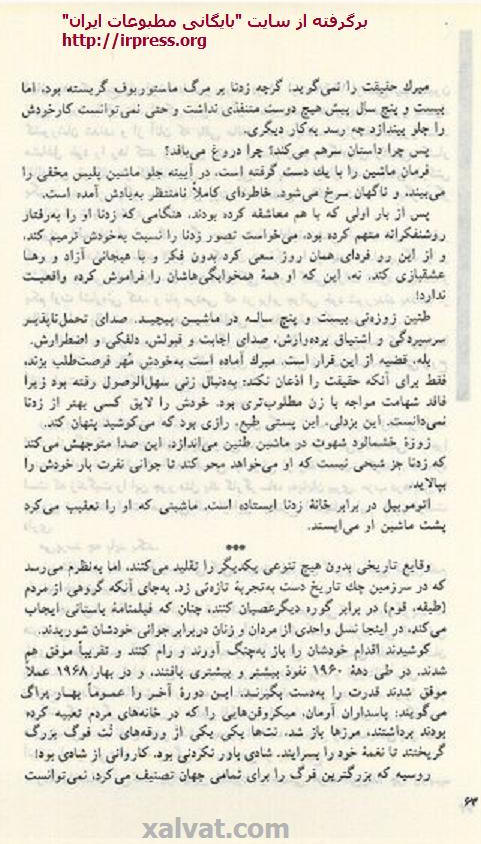 برگرفته از سایت "بایگانی مطبوعات ایران"
http://irpress.org
میرك حقیقت را نمی‌گوید. گرچه زدنا بر مرگ ماستوربوف گریسته بود، اما
بیست و پنج سال پیش هیچ دوست متنفذی نداشت و حتی نمی‌توانست کارخودش
را جلو بیندازد چه رسد به‌کار دیگری.
پس چرا داستان سرهم می‌کند؟ چرا دروغ می‌بافد؟
فرمان ماشین را با یك دست گرفته است. در آیینه جلو ماشین پلیس مخفی را
می‌بیند، و ناگهان سرخ می‌شود. خاطره‌ای کاملاً نامنتظر به‌یادش آمده است.
پس از بار اولی که با هم معاشقه کرده بودند، هنگامی که زدنا او را به‌رفتار
روشنفکرانه متهم کرده بود، می‌خواست تصور زدنا را نسبت به‌خودش ترمیم کند،
و از این رو فردای همان روز سعی کرد بدون فکر و با هیجانی آزاد و رها
عشقبازی کند. نه، این که او همهٔ همخوابگی‌هاشان را فراموش کرده واقعیت
ندارد!
طنین زوزه‌ئی بیست و پنج ساله در ماشین پیچید. صدای تحمل‌ناپذیر
سرسپردگی و اشتیاق برده‌وارش، صدای اجابت و قبولش، دلقکی و اضطرارش.
بله، قضیه از این قرار است. میرك آماده است به‌خودش مُهر فرصت‌طلب بزند،
فقط برای آنکه حقیقت را اذعان نکند: به‌دنبال زنی سهل‌الوصول رفته بود زیرا
فاقد شهامت مواجه با زن مطلوب‌تری بود. خودش را لایق کسی بهتر از زدنا
نمی‌دانست. این بزدلی، این پستی طبع، رازی بود که می‌کوشید پنهان کند.
زوزهٔ خشمالود شهوت در ماشین طنین می‌اندازد، این صدا متوجهش می‌کند
که زدنا جز شبحی نیست که او می‌خواهد محو کند تا جوانی نفرت بار خودش را
بپالاید.
اتومبیل در برابر خانهٔ زدنا ایستاده است. ماشینی که او را تعقیب می‌کرد
پشت ماشین او می‌ایستد.
***
وقایع تاریخی بدون هیچ تنوعی یکدیگر را تقلید می‌کنند، اما به‌نظرم می‌رسد
که در سرزمین چك تاریخ دست به‌تجربهٔ تازه‌ئی زد. به‌جای آنکه گروهی از مردم
(طبقه، قوم) در برابر گروه دیگرعصیان کنند، چنان که فیلمنامهٔ باستانی ایجاب
می‌کند، در اینجا نسل واحدی از مردان و زنان دربرابر جوانی خودشان شوریدند.
کوشیدند اقدام خودشان را باز به‌چنگ آورند و رام کنند و تقریباً موفق هم
شدند. در طی دههٔ ۱۹۶۰ نفوذ بیشتر و بیشتری یافتند، و در بهار ۱۹۶۸ عملاً
موفق شدند قدرت را به‌دست بگیرند. این دورهٔ آخر را عموماً بهار پراگ
می‌گویند: پاسداران آرمان، میکروفن‌هایی را که در خانه‌های مردم تعبیه کرده
بودند برداشتند، مرزها باز شد، نت‌ها یکی یکی از ورقه‌های نُت فوگ بزرگ
گریختند تا نغمهٔ خود را بسرایند. شادی باور نکردنی بود. کاروانی از شادی بود!
روسیه که بزرگترین فوگ را برای تمامی جهان تصنیف می‌کرد، نمی‌توانست
۶۳
xalvat.com